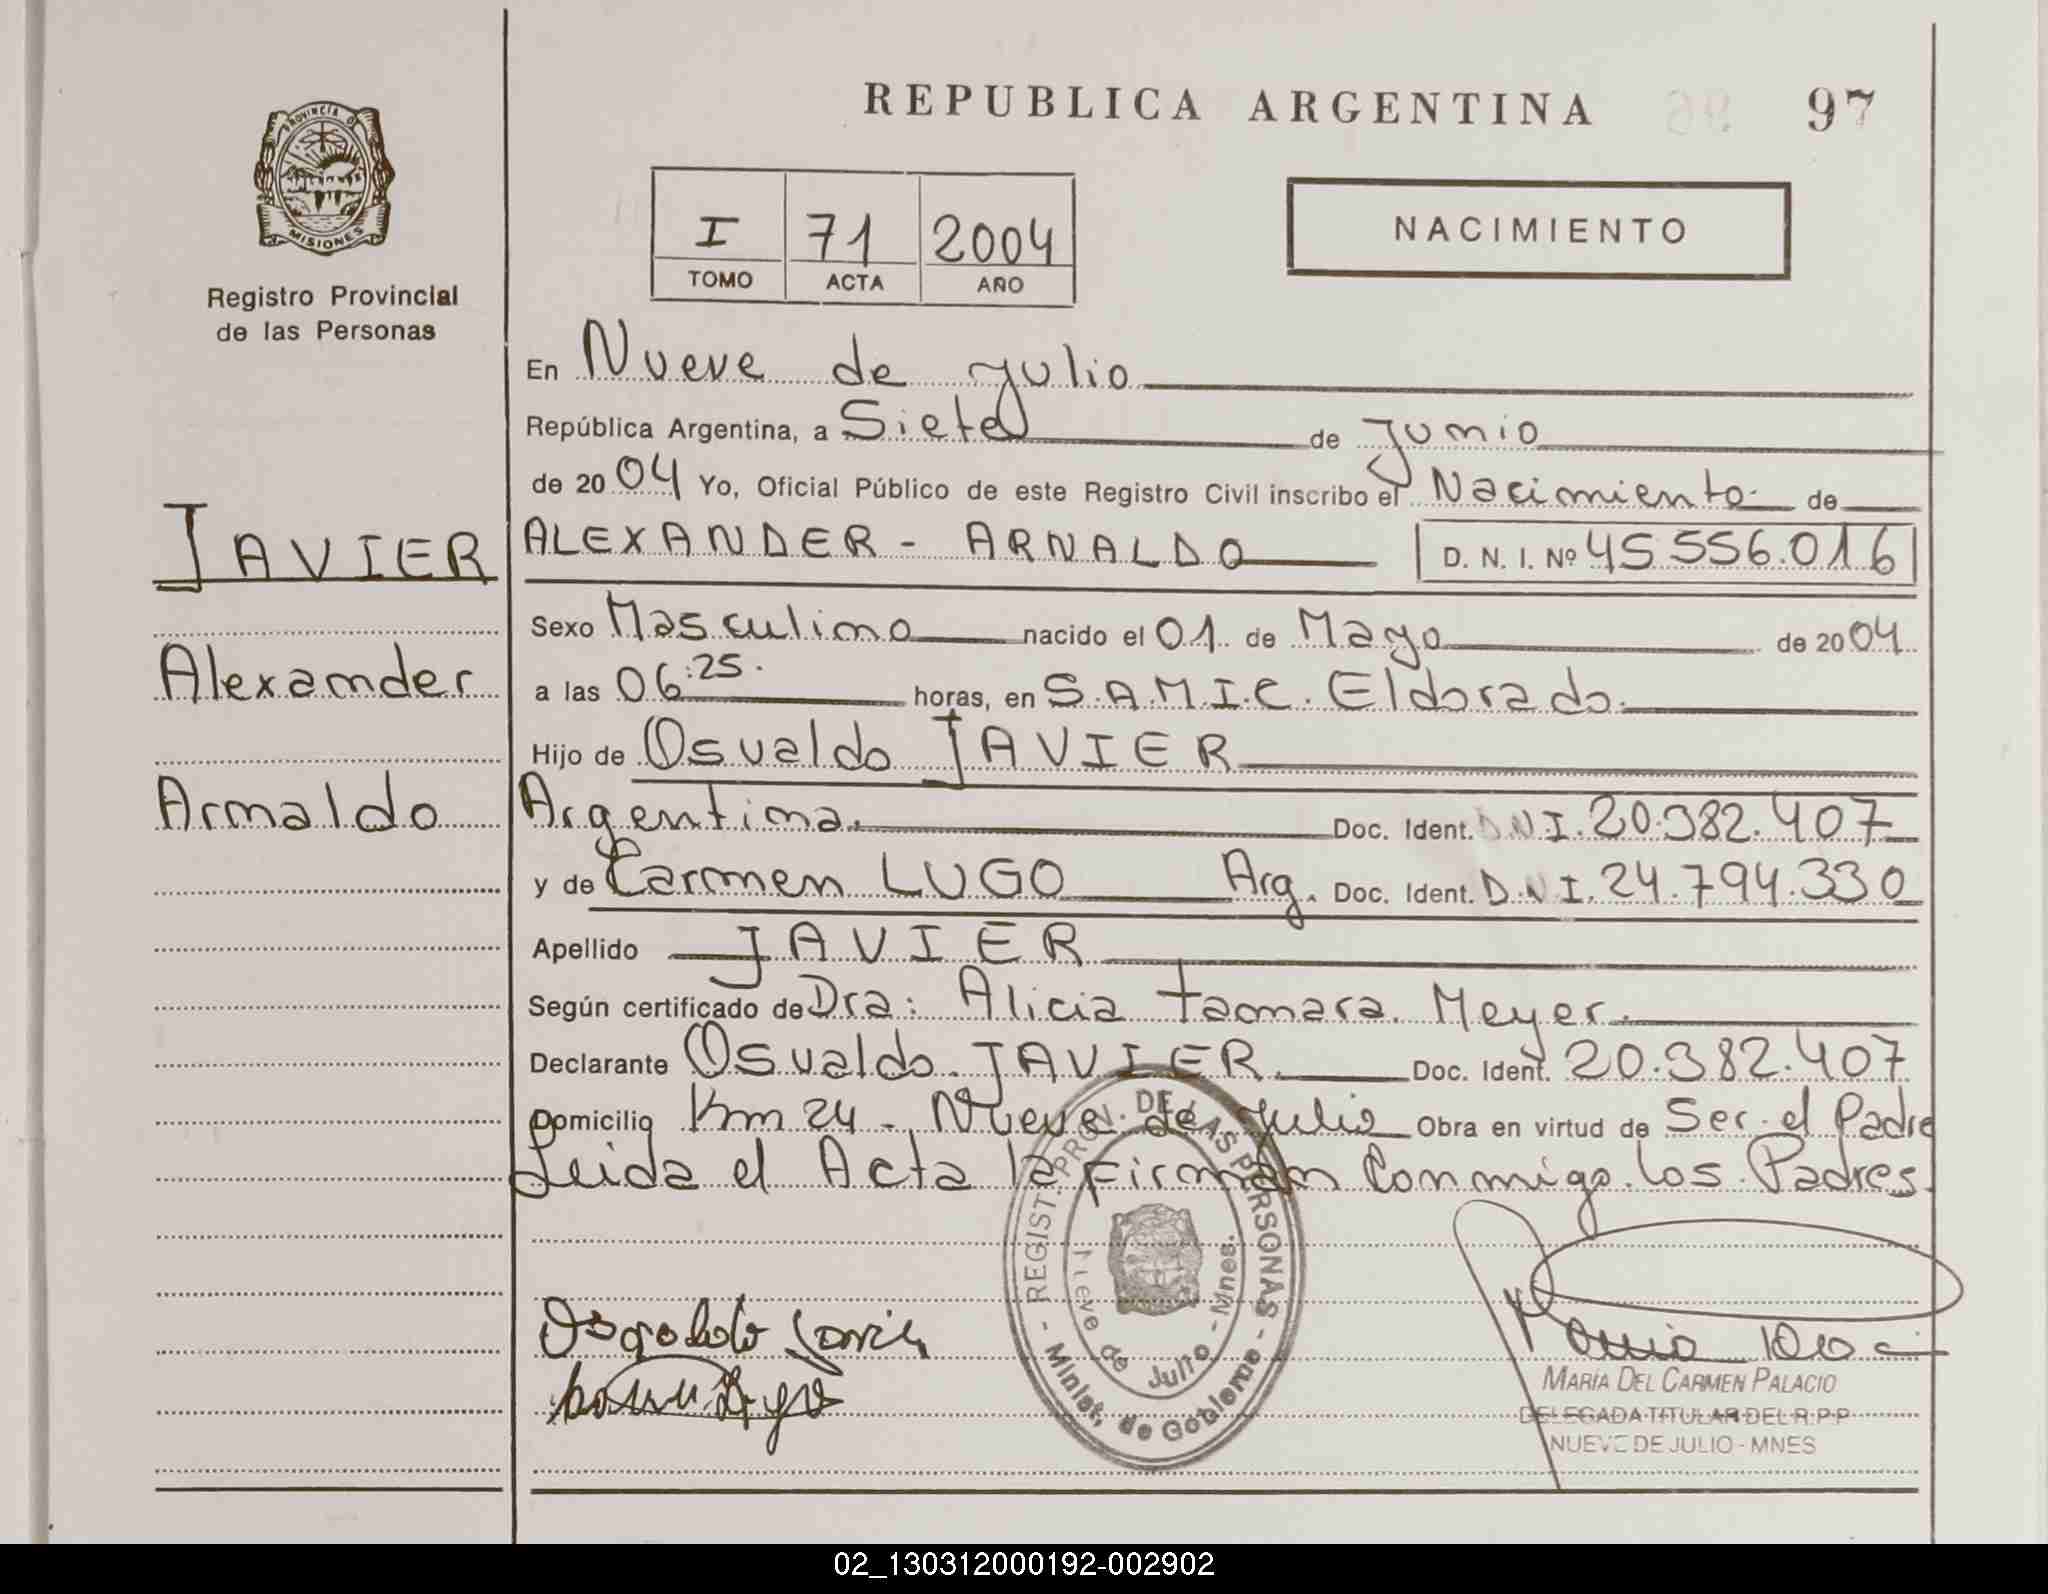 REPUBLICA ARGENTINA
97
PROVINCIA D
MISIONES
Registro Provincial
de las Personas
I 71 2004
TOMO ACTA AÑO
NACIMIENTO
En Nueve de Julio
República Argentina, a Siete de Junio
de 2004 Yo, Oficial Público de este Registro Civil inscribo el Nacimiento de
JAVIER
ALEXANDER - ARNALDO D. N. I. Nº 45.556.016
Sexo Masculino nacido el 01 de Mayo de 2004
Alexander
a las 06:25. horas, en S.A.M.I.C. Eldorado.
Hijo de Osvaldo JAVIER
Arnaldo
Argentina. Doc. Ident. D.N.I. 20.382.407
y de Carmen LUGO Arg. Doc. Ident. D.N.I. 24.794.330
Apellido JAVIER
Según certificado de Dra: Alicia Tamara Meyer.
Declarante Osvaldo JAVIER. Doc. Ident. 20.382.407
Domicilio Km 24 - Nueve de Julio Obra en virtud de Ser el Padre
Leida el Acta la Firman Conmigo los Padres.
REGIST. PROV. DE LAS PERSONAS
Nueve de Julio - Mnes.
- Minist. de Gobierno -
MARIA DEL CARMEN PALACIO
DELEGADA TITULAR DEL R.P.P
NUEVE DE JULIO - MNES
02_130312000192-002902